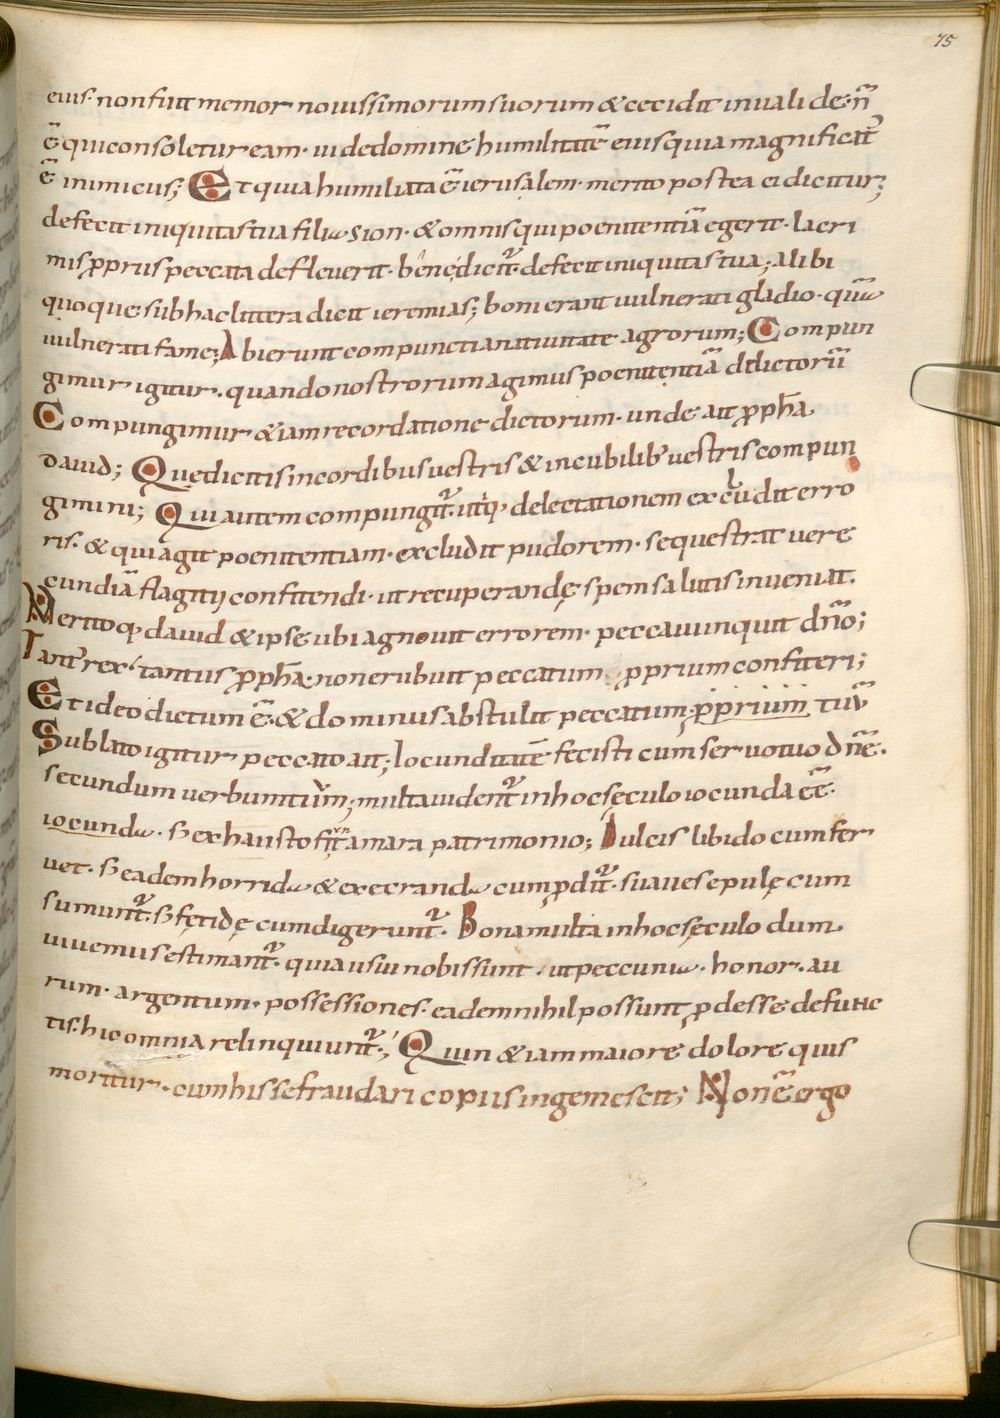 75
eius· non fuit memor nouissimorum suorum & cecidit inualide· n̄
ē qui consoletur eam· uide domine humilitatē eius quia magnificat᷒
ē inimicus; Et quia humiliata ē ierusalem· merito postea ei dicitur;
defecit iniquitas tua filia sion· & omnis qui poenitentiā egerit· lacri
mis ꝓpriis peccata defleuerit· benędicit᷒· defecit iniquitas tua; alibi
quoque sub hac littera dicit ieremias; boni erant uulnerati gladio· quā
uulnerati fame; Abierunt compuncti a natiuitate agrorum; Compun
gimur igitur· quando nostrorum agimus poenitentiā delictorū
Compungimur & iam recordatione dictorum· unde ait ꝓph̄a
dauid; Quę dicitis in cordibus uestris & in cubilib; uestris compun
gimini; Qui autem compungit᷒· utiq; delectationem excludit erro
ris· & qui agit poenitentiam· excludit pudorem· sequestrat uere
cundiā flagitij confitendi· ut recuperandę spem salutis inueniat·
Meritoq; dauid & ipse ubi agnouit errorem· peccaui inquit dn̄o;
Tant᷒ rex· tantus ꝓph̄a· non erubuit peccatum ꝓprium confiteri;
Et ideo dictum ē· & dominus abstulit peccatum ꝓprium tuū
Sublato igitur peccato ait; Iocunditatē fecisti cum seruo tuo dn̄e·
secundum uerbum tuūm; multa uident᷒ in hoc sęculo iocunda eē·
iocunda· s; exhausto fiūt amara patrimonio; Dulcis libido cum fer
uet· s; eadem horrida & execranda cum ꝑdit᷒· suaues epulę cum
sumunt᷒· s; fętidę cum digerunt᷒· Bona multa in hoc sęculo dum
uiuemus estimant᷒· quia usui nobis sunt· ut peccunia· honor· au
rum· argentum· possessiones· eadem nihil possunt ꝓdesse defunc
tis· hic omnia relinquunt᷒; Quin & iam maiore dolore quis
moritur· cum his se fraudari copiis ingemescit; Non ē ergo